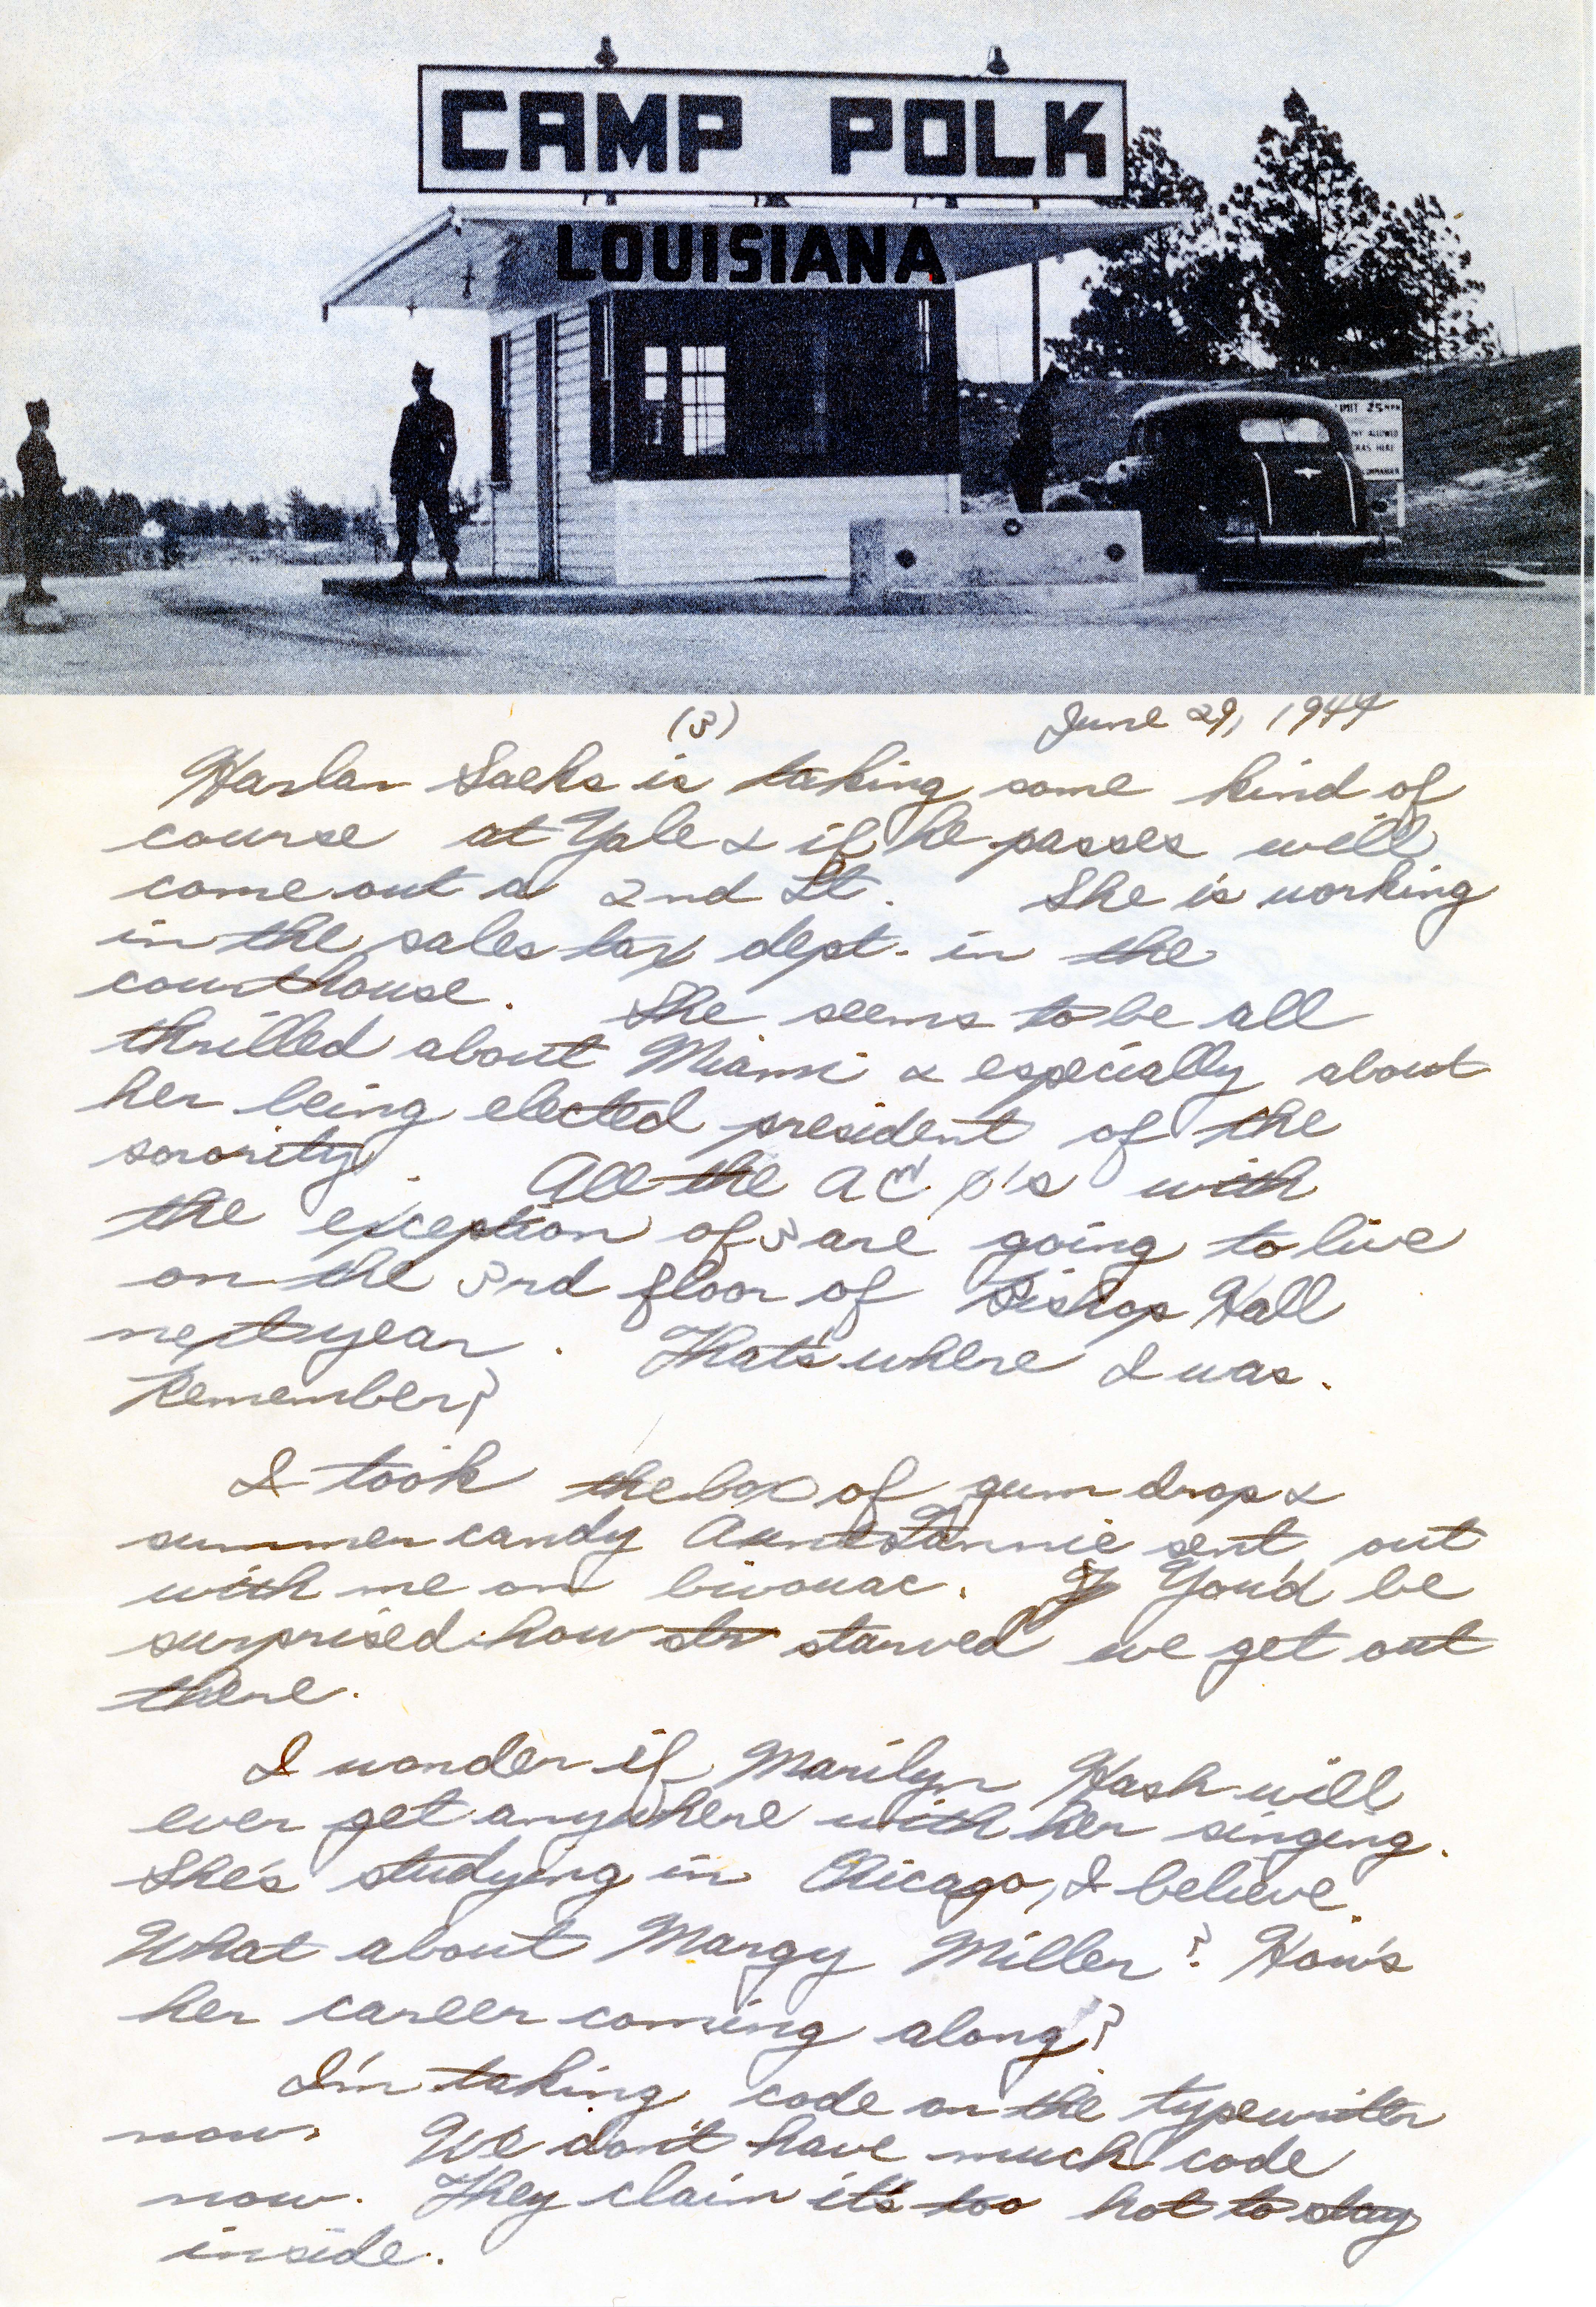 CAMP POLK
LOUISIANA
LIMIT 25 MPH
ALLOWED
HERE
(3) June 29, 1944
Harlan Sachs is taking some kind of
course at Yale & if he passes will
come out a 2nd Lt. She is working
in the sales tax dept. in the
courthouse. She seems to be all
thrilled about Miami & especially about
her being elected president of the
sorority. All the A's with
the exception of 3 are going to live
on the 3rd floor of Bishop Hall
next year. That's where I was.
Remember?
I took the box of gum drops &
summer candy Aunt Fannie sent out
with me on bivouac. You'd be
surprised how starved we get out
there.
I wonder if Marilyn Hash will
ever get anywhere with her singing.
She's studying in Chicago, I believe.
What about Margy Miller? How's
her career coming along?
I'm taking code on the typewriter
now. We don't have much code
now. They claim it's too hot to stay
inside.